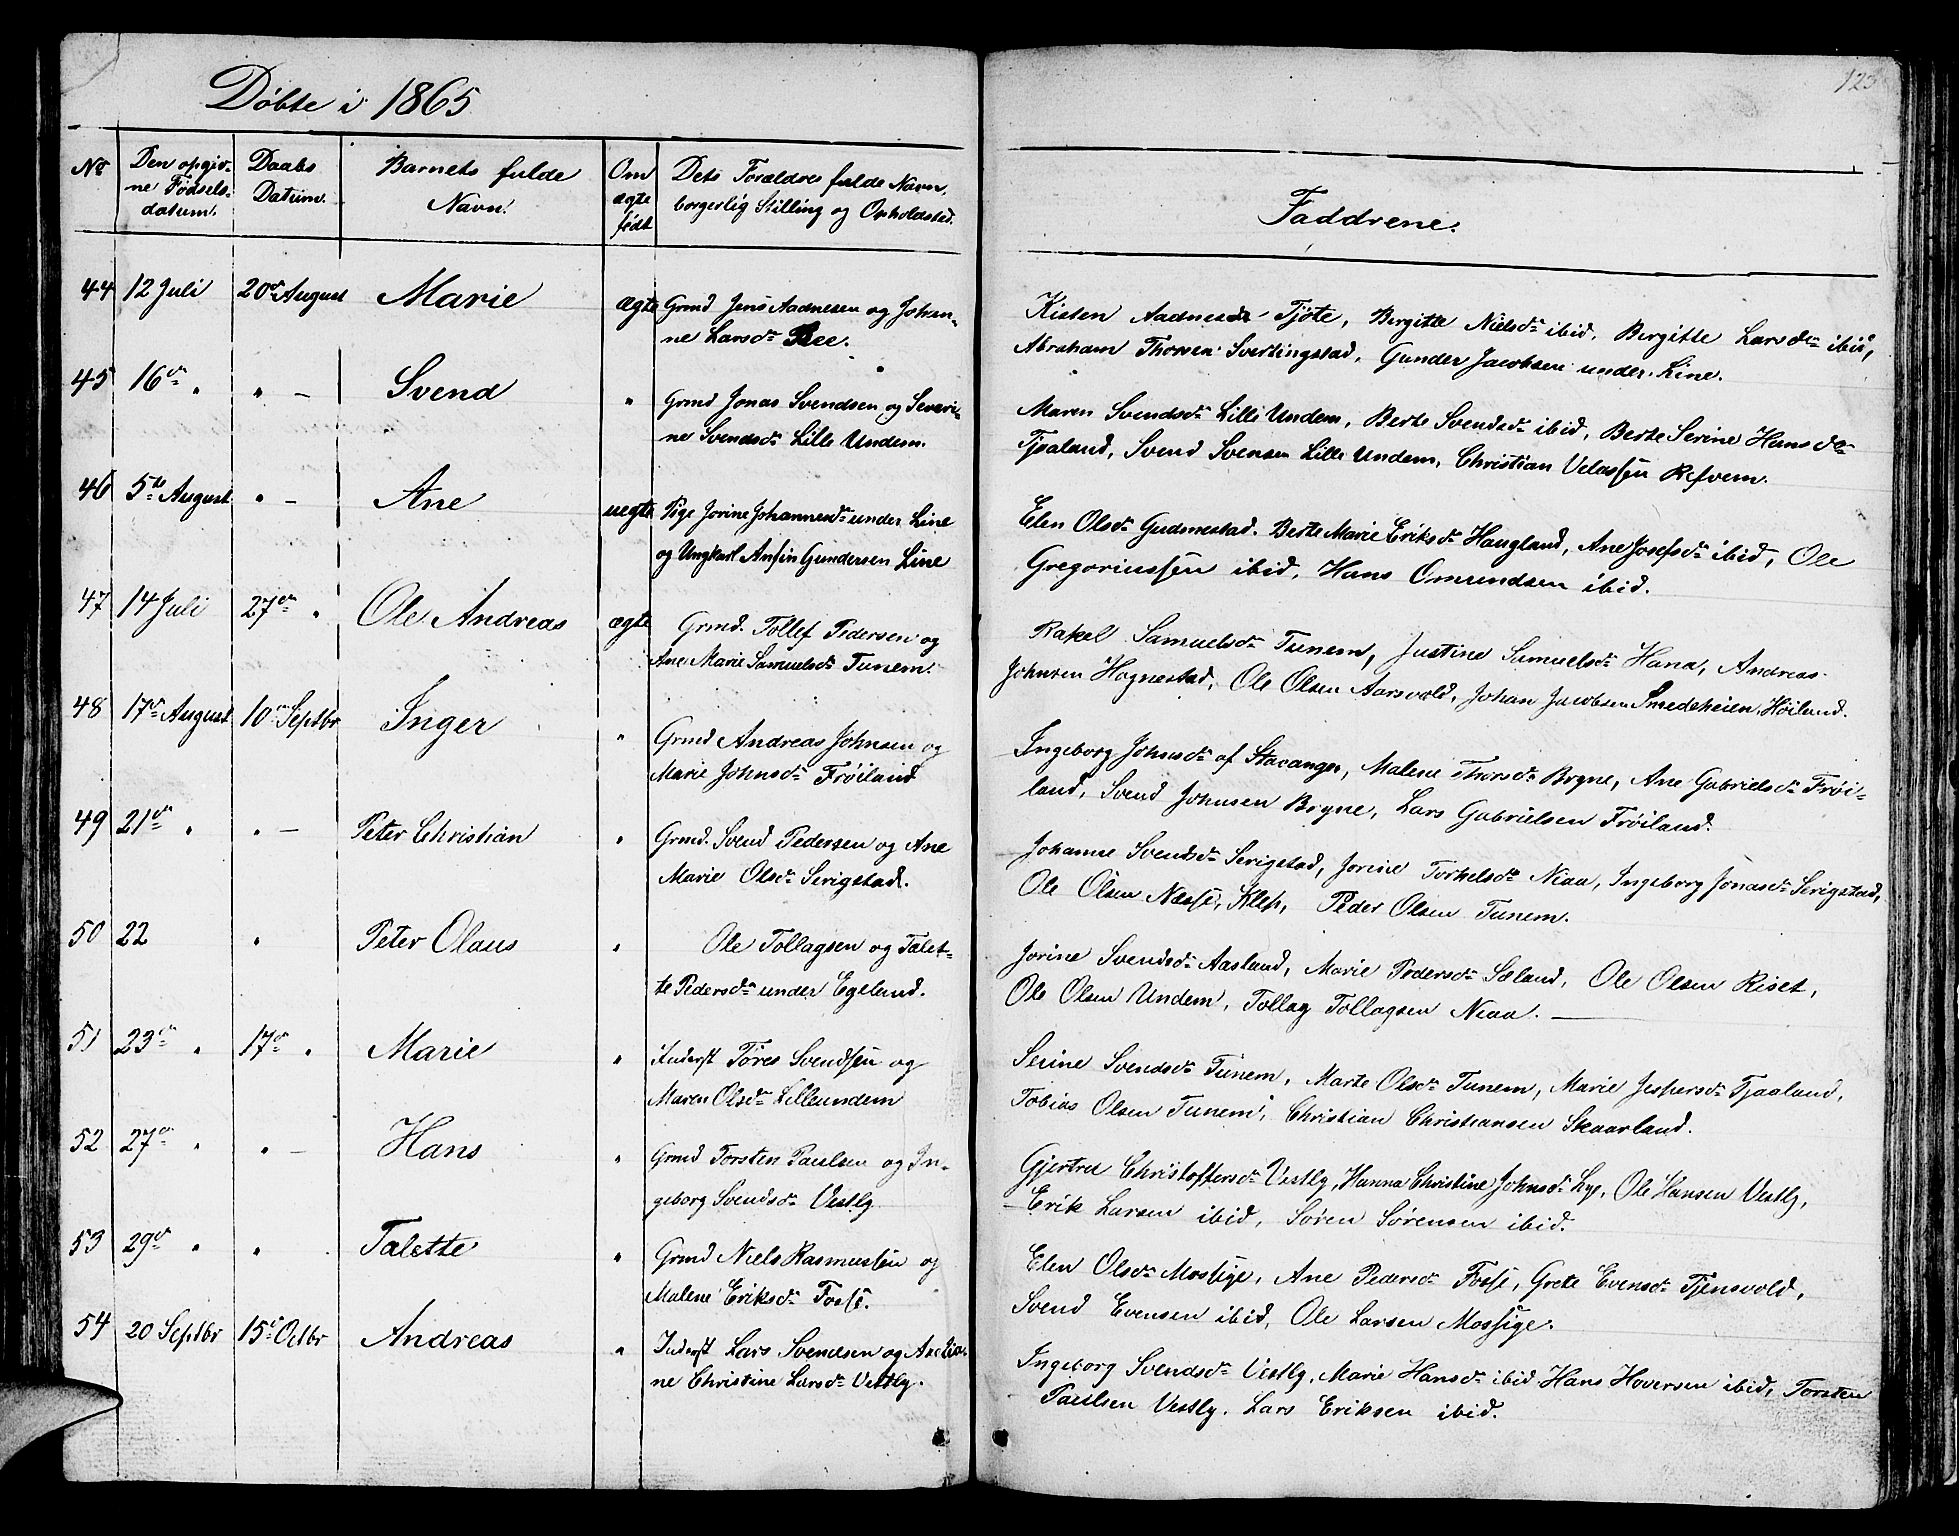 Döbte i 1865
123
No
Den opgiv-
ne Fødsels-
datum.
Daabs
Datum.
Barnets fulde
Navn.
Om
ægte
født
Dets Forældres fulde Navn,
borgerlig Stilling og Opholdssted.
Faddrene.
44 12 Juli 20de August Marie ægte Grmd Jens Aadnesen og Johan-
ne Larsdr Ree.
Kisten Aadnesdr Tjöte, Bergitte Nielsdr ibid, Bergitte Larsdr ibid,
Abraham Thorsen Svertingstad, Gunder Jacobsen under Line.
45 16de " " - Svend " Grmd Jonas Svendsen og Severi-
ne Svendsdr Lille Undem.
Maren Svendsdr Lille Undem, Berte Svendsdr ibid, Berte Serine Hansdr
Tjaaland, Svend Svensen Lille Undem, Christian Velassen Refvem.
46 5te August " - Ane uegte Pige Jorine Johannesdr under Line
og Ungkarl Ansin Gundersen Line
Elen Olsdr Gudmestad. Berte Marie Eriksdr Haugland, Ane Josefsdr ibid, Ole
Gregoriussen ibid, Hans Omundsen ibid.
47 14 Juli 27de " Ole Andreas ægte Grmd. Tollef Pedersen og
Ane Marie Samuelsdr Tunem.
Rakel Samuelsdr Tunem, Justine Samuelsdr Hana, Andreas
Johnsen Hognestad, Ole Olsen Aarsvold, Johan Jacobsen Smedeheien, Höiland.
48 17de August 10de Septbr Inger " Grmd Andreas Johnsen og
Marie Johnsdr Fröiland
Ingeborg Johnsdr af Stavanger, Malene Thorsdr Bryne, Ane Gabrielsdr Fröi-
land, Svend Johnsen Bryne, Lars Gabrielsen Fröiland.
49 21de " " - Peter Christian " Grmd. Svend Pedersen og Ane
Marie Olsdr Serigstad.
Johanne Svendsdr Serigstad, Jorine Torkelsdr Niaa, Ingeborg Jonasdr Serigstad,
Ole Olsen Næsse, Klep, Peder Olsen Tunem.
50 22 " Peter Olaus " Ole Tollagsen og Talet-
te Pedersdr under Egeland.
Jorine Svendsdr Aasland, Marie Pedersdr Sæland, Ole Olsen Riset,
Ole Olsen Undem, Tollag Tollagsen Niaa. —
51 23de " 17de " Marie " Inderst Töres Svendsen og
Maren Olsdr Lilleundem
Serine Svendsdr Tunem, Marte Olsdr Tunem, Marie Jespersdr Tjaaland,
Tobias Olsen Tunem, Christian Christiansen Skaarland.
52 27de " " - Hans " Grmd Torsten Paulsen og In-
geborg Svendsdr Vestly
Gjertru Christoffersdr Vestly, Hanna Christine Johnsdr Lye, Ole Hansen Vestly,
Erik Larsen ibid, Sören Sörensen ibid.
53 29de " " Talette " Grmd Niels Rasmussen og
Malene Eriksdr Fosse.
Elen Olsdr Mossige, Ane Pedersdr Fosse, Grete Evensdr Tjensvold,
Svend Evensen ibid, Ole Larsen Mossige.
54 20 Septbr 15de Octbr Andreas " Inderst Lars Svendsen og
ne Christine Larsdr Vestly.
Ingeborg Svendsdr Vestly, Marie Hansdr ibid Hans Hoversen ibid, Torsten
Paulsen Vestly, Lars Eriksen ibid.